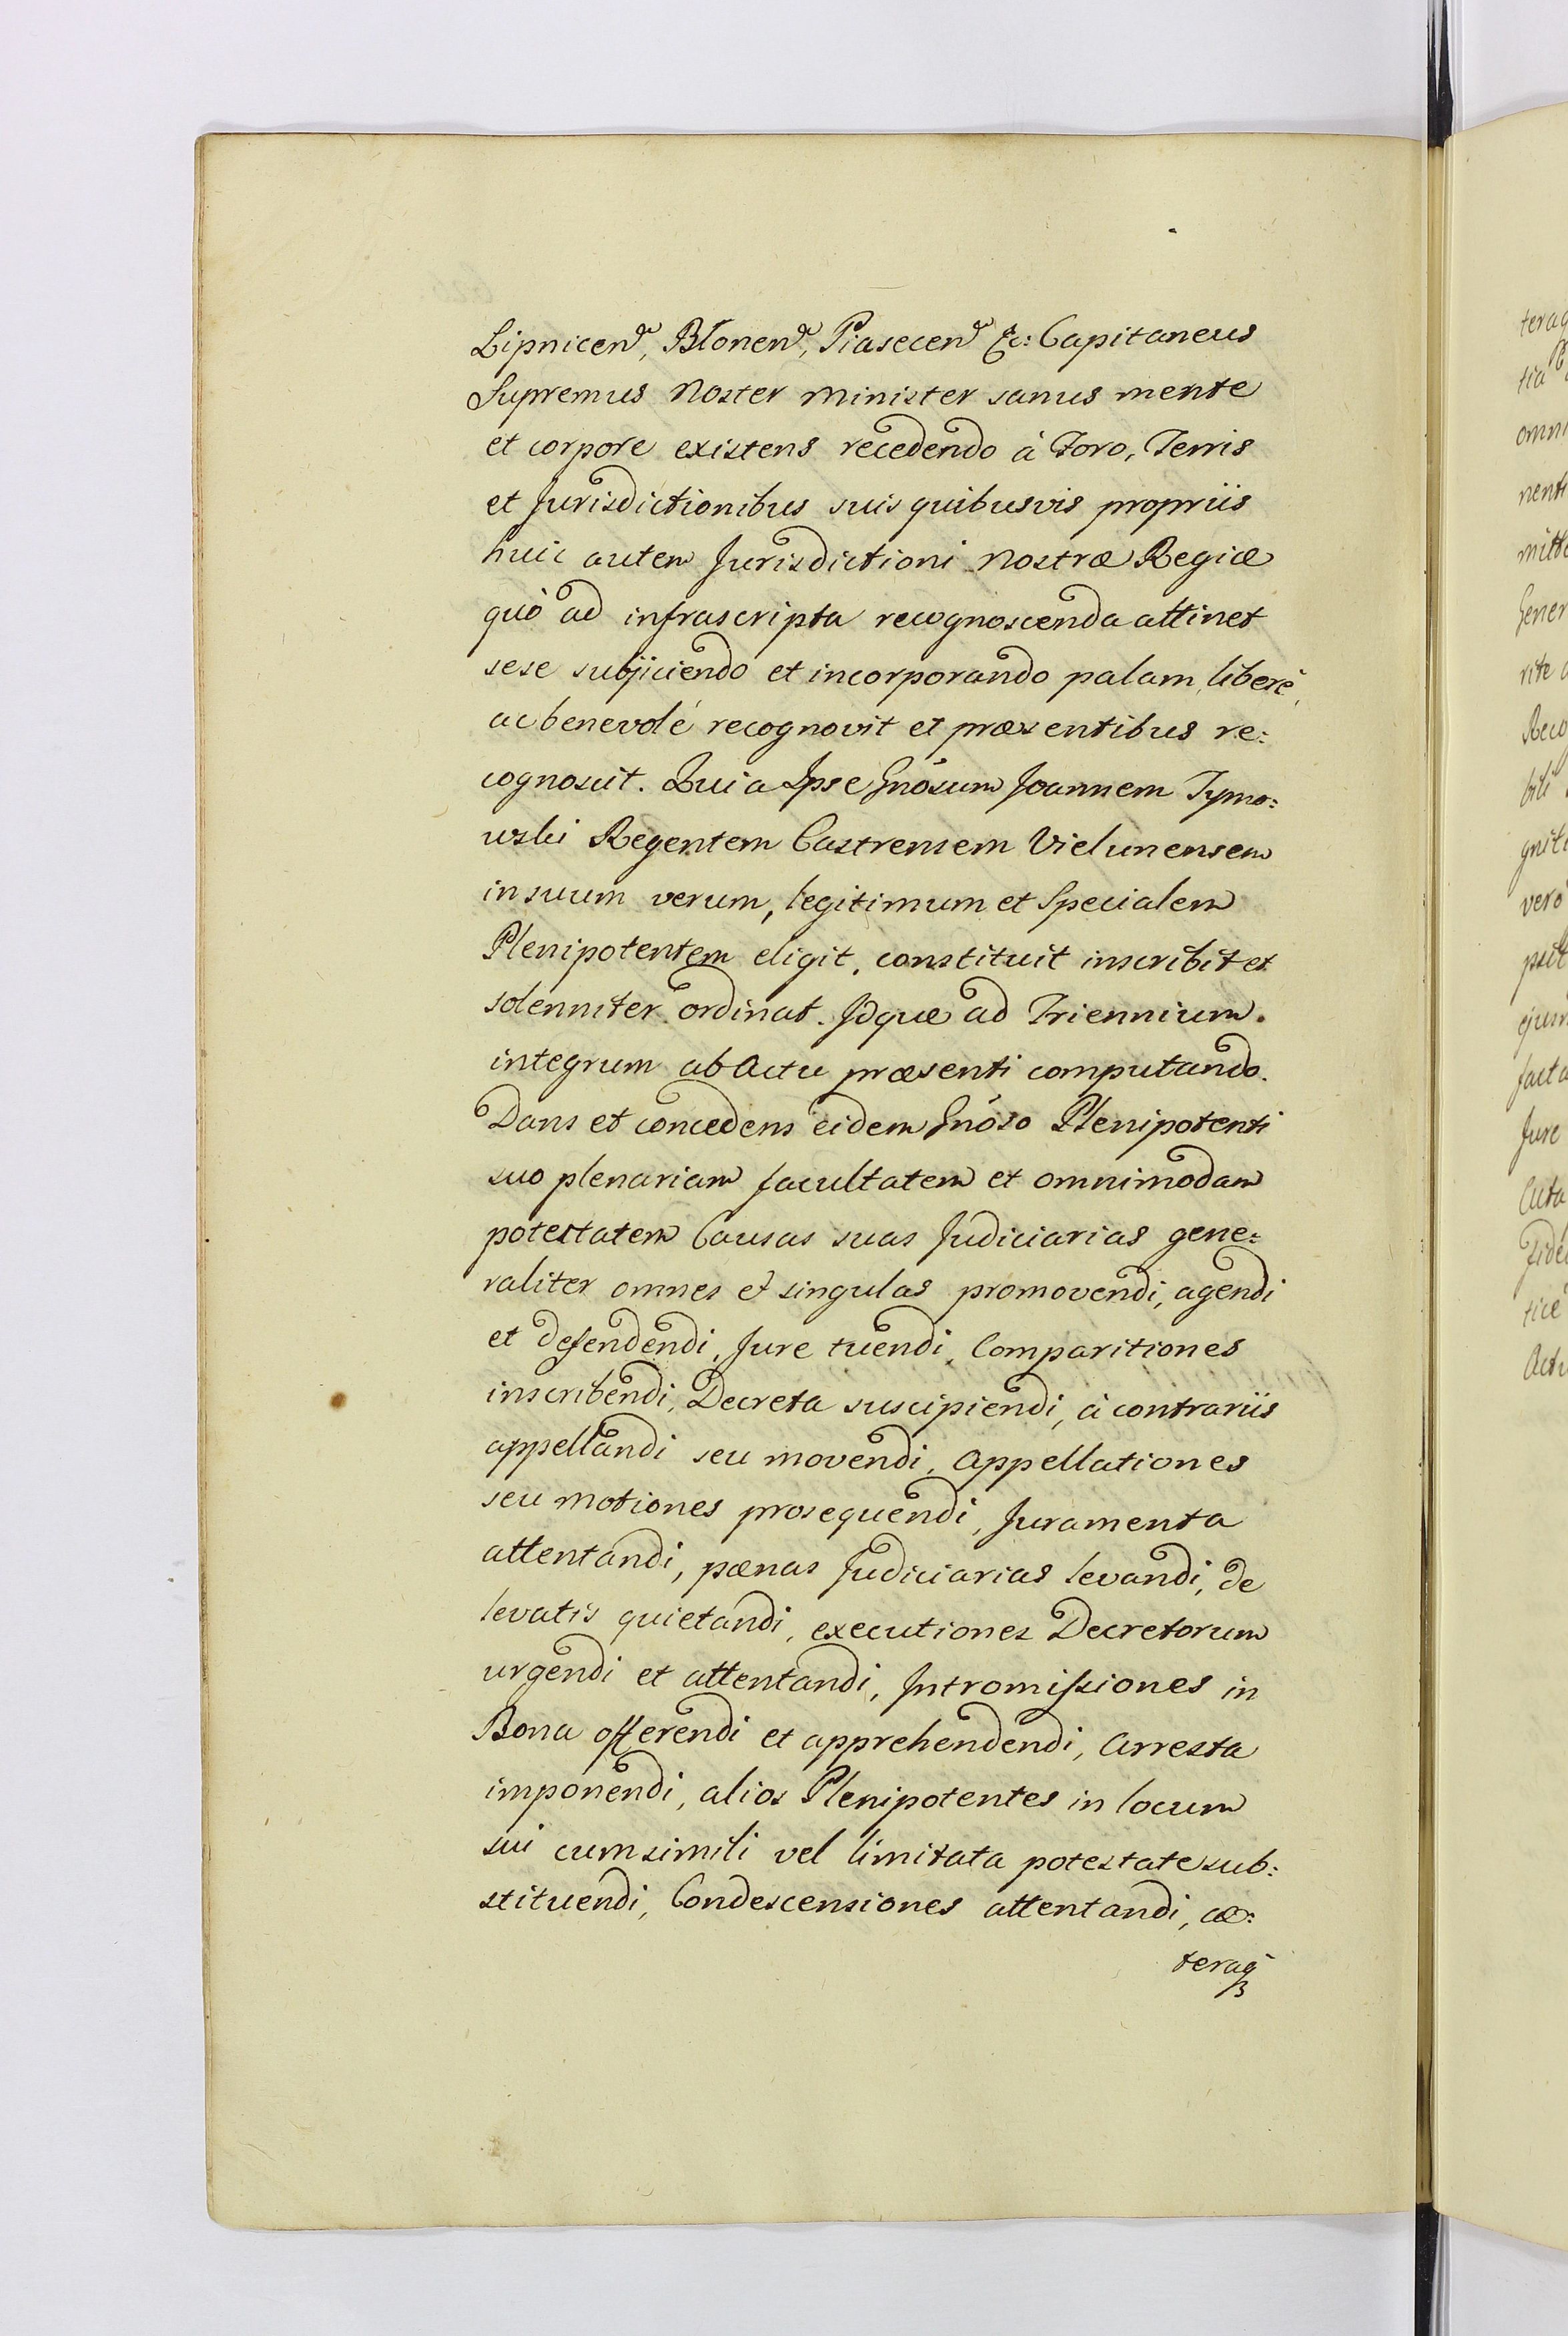 Lipnicen, Blonen, Piasecen &c: Capitaneus
Supremus Noster Minister sanus mente
et corpore existens recedendo à Foro, Terris
et Jurisdictionibus suis quibusvis propriis
huic autem Jurisdictioni Nostræ Regiæ
quò ad infrascripta recognoscenda attinet
sese subjiciendo et incorporando palam, liberè,
ac benevolé recognovit et præsentibus re:
cognoscit. Quia Ipse Gnosum Joannem Tymo:
wski Regentem Castrensem Vielunensem
in suum verum, legitimum et Specialem
Plenipotentem eligit, constituit inscribit et
solenniter ordinat. Idque ad Triennium.
integrum ab Actu præsenti computando.
Dans et concedens eidem Gnoso Plenipotenti
suo plenariam facultatem et omnimodam
potestatem Causas suas Judiciarias gene:
raliter omnes et singulas promovendi, agendi
et defendendi, Jure tuendi, Comparitiones
inscribendi, Decreta suscipiendi, à contrariis
appellandi seu movendi, Appellationes
seu motiones prosequendi, Juramenta
attentandi, pœnas Judiciarias levandi, de
levatis quietandi, executiones Decretorum
urgendi et attentandi, Intromissiones in
Bona offerendi et apprehendendi, Arresta
imponendi, alios Plenipotentes in locum
sui cum simili vel limitata potestate sub:
stituendi, Condescensiones attentandi, cæ:
teraq3